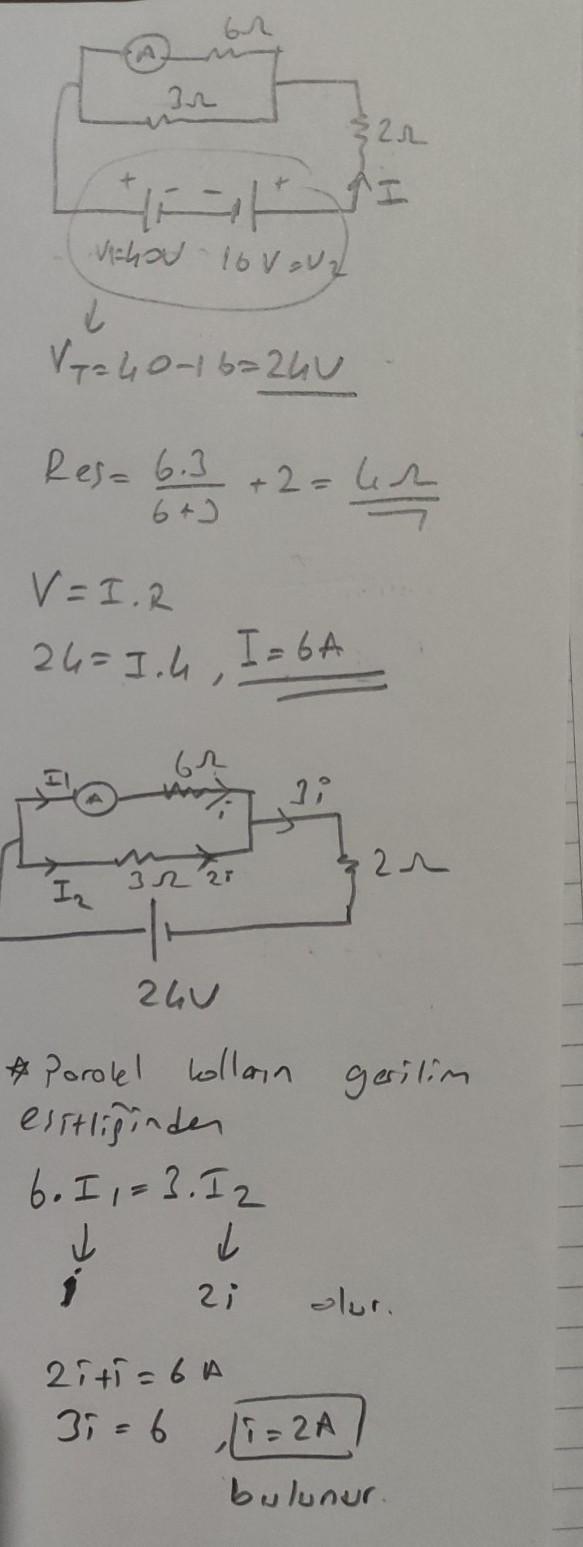 6Ω
A
3Ω
2Ω
+ - - +
I
V1=40V 16V=V2
VT=40-16=24V
Reş= 6.3/6+3 +2= 4Ω
V=I.R
24=I.4, I=6A
I1 A 6Ω i 3i
I2 3Ω 2i 2Ω
24V
* Paralel kolların gerilim
eşitliğinden
6.I1=3.I2
i 2i olur.
2i+i=6A
3i=6, i=2A
bulunur.